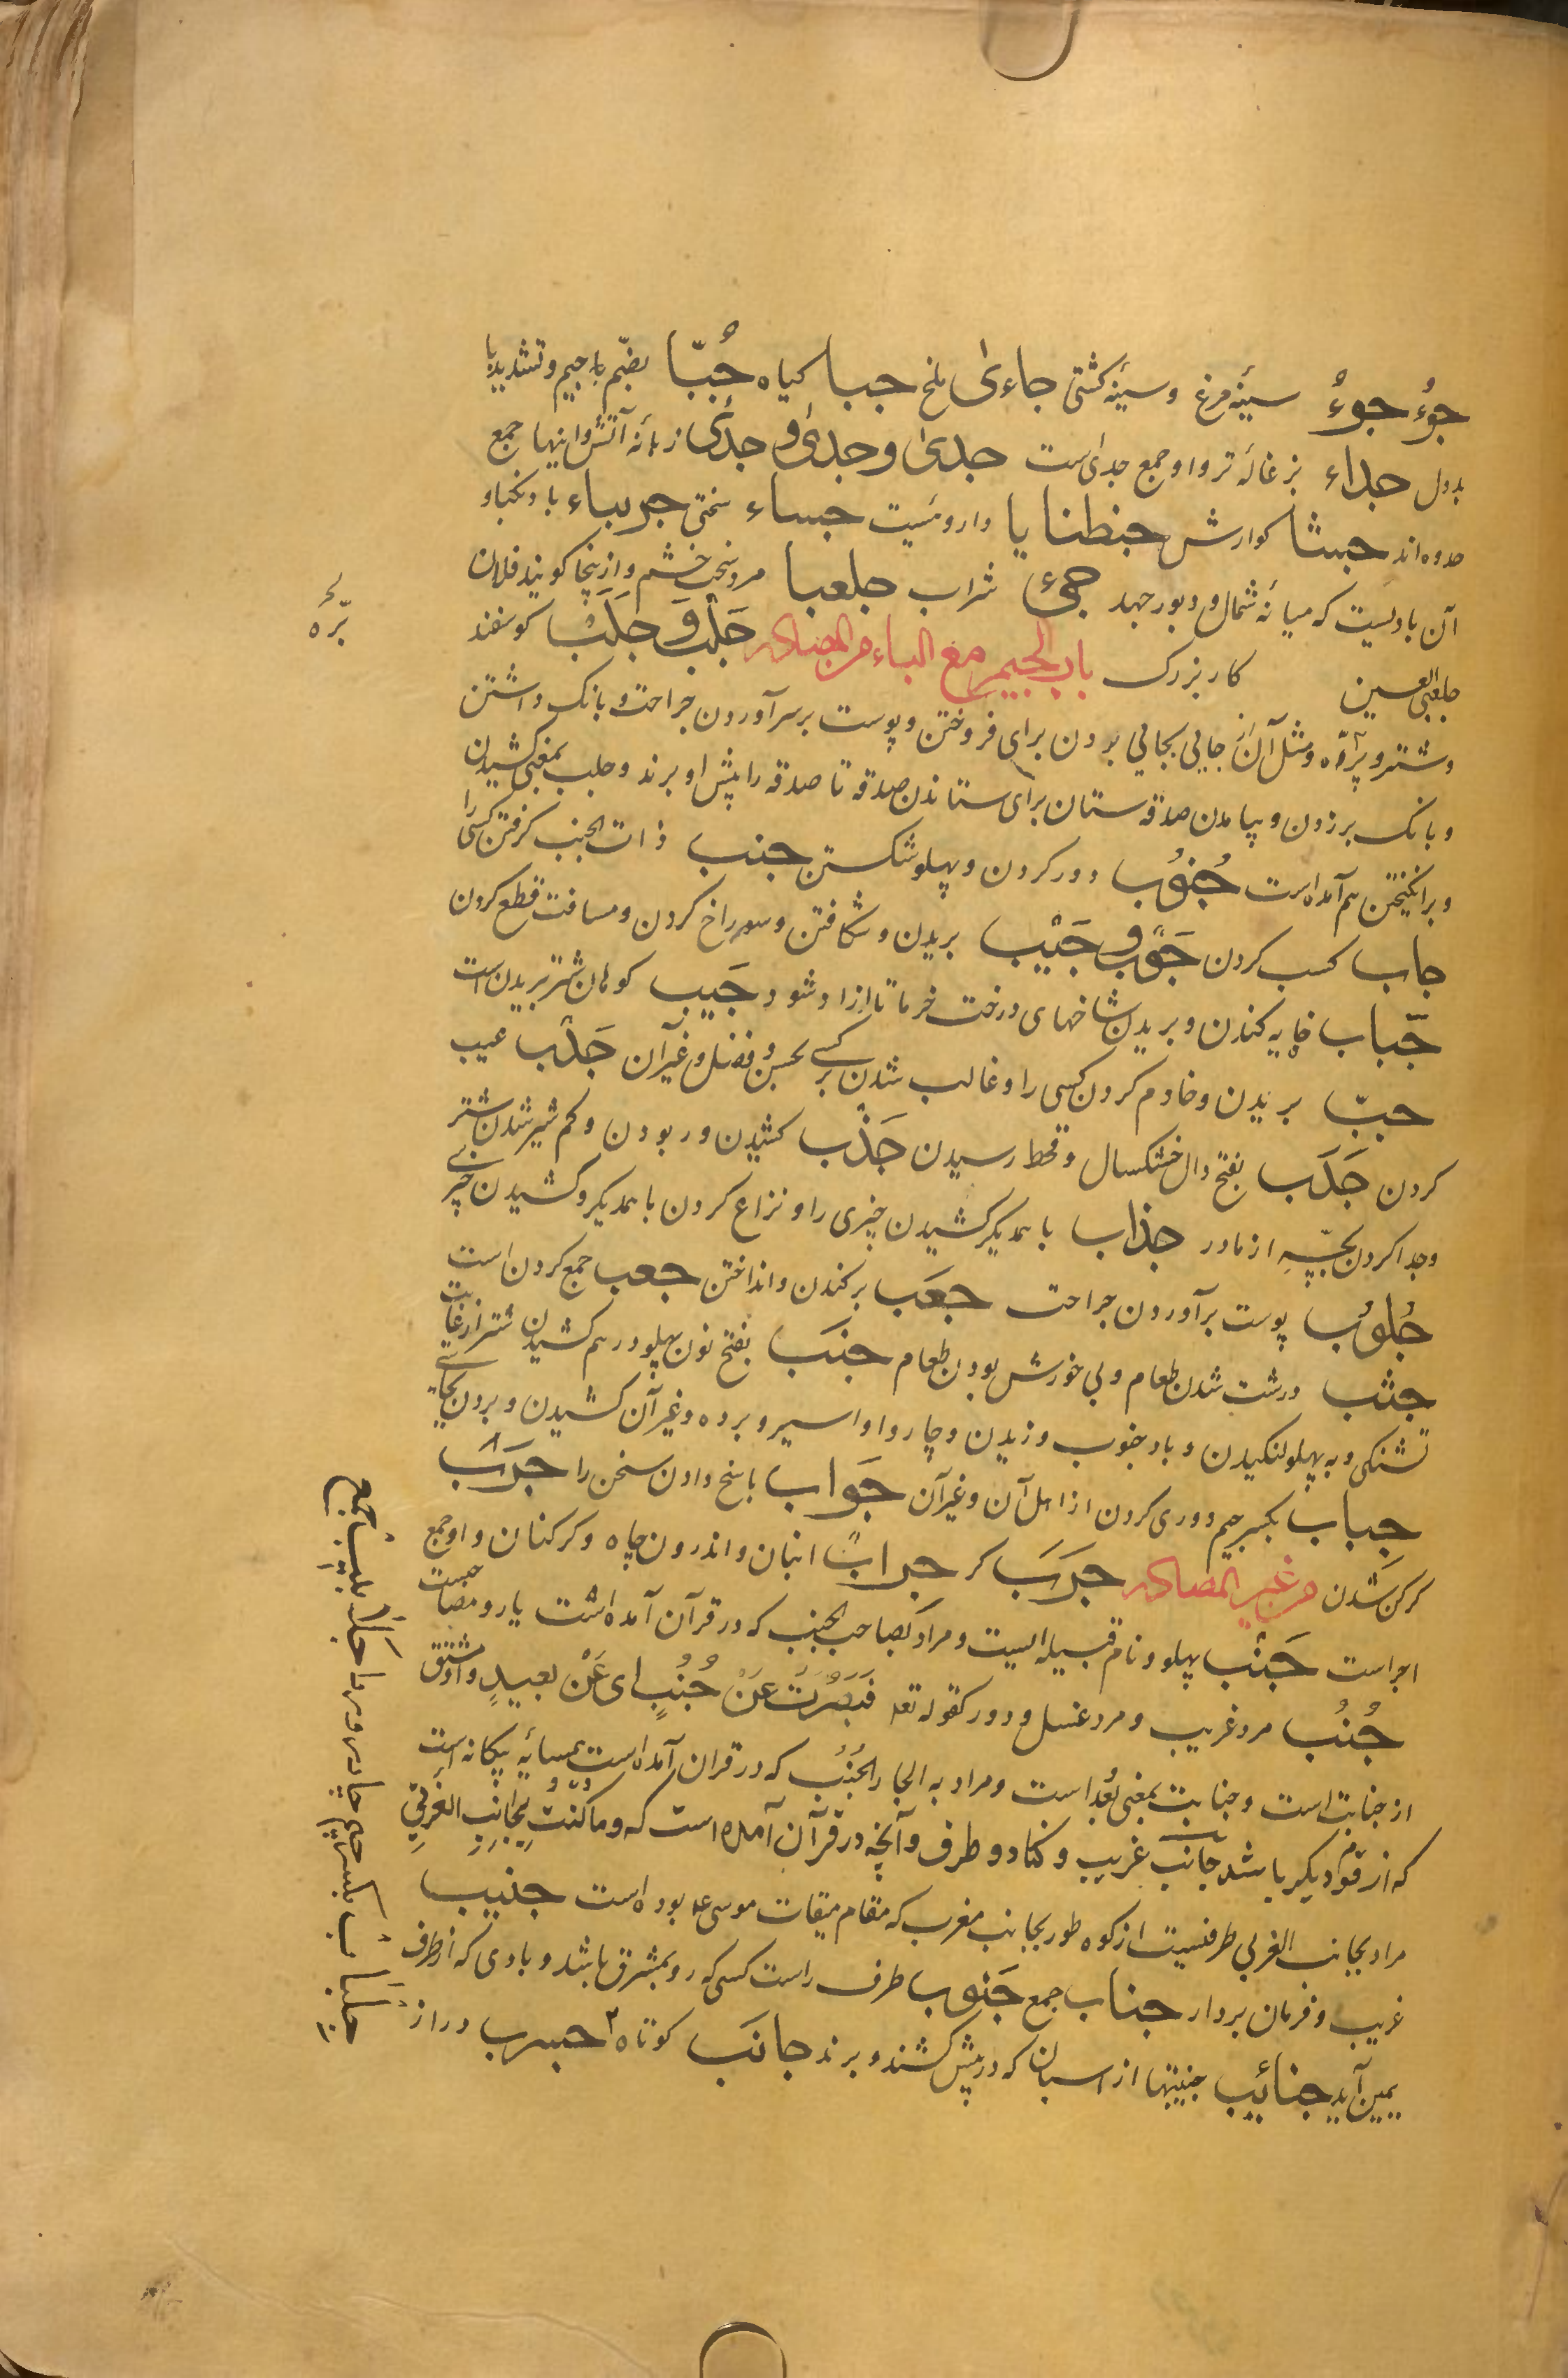 جوُء جوءُ سینهٔ مرغ و سینهٔ کشتی جاءی ملخ جبا کیاه جُبّا بضّم با جیم و تشدید با
بددل جداء بزغالهٔ تر و او جمع جدای است جدی و جدی و جدی زبانهٔ آتش و اینها جمع
جدوه اند جبشا کوارش جنطنایا داروئیست جساء سختی جربیاء باد نکباو
آن بادیست که میانهٔ شمال و دبور جهد جیٔ شراب جلعبا مرد سخت خشم و ازینجا کویند فلان
جلعبی العین کار بزرک باب الجیم مع الباء من المصادر جَلْب وَ جَلَبْ کوسفند
و شتر و پرده و مثل آن از جایی بجایی بردن برای فروختن و پوست بر سر آوردن جراحت و بانک داشتن
و بانک بر زدن و بیامدن صدقه ستان برای ستاندن صدقه تا صدقه را پیش او برند و جلب بمعنی کشیدن
و برانکیختن هم آمده است جُنوُب دور کردن و پهلو شکستن جنب ذات الجنب کرفتن کسی را
جاب کسب کردن جَوْب و جَیْب بریدن و شکافتن و سوراخ کردن و مسافت قطع کردن
جَباب خایه کندن و بریدن شاخهای درخت خرما تا ازاد شود و جَیب کوهان شتر بریدن است
جبّ بریدن و خادم کردن کسی را و غالب شدن بر کسی بحسن و فضل و غیر آن جَدْب عیب
کردن جَدَب بفتح دال خشکسال و قحط رسیدن جَذْب کشیدن و ربودن و کم شیر شدن شتر
و جدا کردن بچّهِ از مادر جذاب با همدیکر کشیدن چیزی را و نزاع کردن با همدیکر و کشیدن چیزی
جُلوُب پوست برآوردن جراحت جعَب برکندن و انداختن جعب جمع کردن است
جثب درشت شدن طعام و بی خورش بودن طعام جنَب بفتح نون پهلو درهم کشیدن شتر از غایت
تشنکی و به پهلو لنکیدن و باد جنوب وزیدن و چاروا و اسیر و برده و غیر آن کشیدن و بردن بجایی
جباب بکسر جیم دوری کردن از اهل آن و غیر آن جَواب پاسخ دادن سخن را جرَب
کرکن شدن من غیر المصادر جرَبَ کر جراب انبان و اندرون چاه و کرکنان و او جمع
اجر است جَنْب پهلو و نام قبیله ایست و مراد بصاحب الجنب که در قرآن آمده است یار و مصاحبست
جُنُب مرد غریب و مرد غسل و دور کقوله تعه فَبَصُرَتْ عَنْ جُنُبٍ ای عَنْ بعیدٍ و او مشتق
از جنابت است و جنابت بمعنی بُعد است و مراد به الجار الجُنُب که در قران آمده است همسایهِ بیکانه است
که از قوم دیکر باشد جانَب غریب و کنار و طرف و آنچه در قرآن آمده است که و ما کُنْتَ بِجانِبِ الغَربِی
مراد بجانب الغربی طرفیست از کوه طور بجانب مغرب که مقام میقات موسی ع بوده است جنیب
غریب و فرمان بردار جناب جمع جَنوب طرف راست کسی که رو بمشرق باشد و بادی که از طرف
یمین آید جنائیب جنیبتها از اسبان که در پیش کشند و برند جانَب کوتاه جسرب دراز
برّه
جِلبَاب بکسر جیم چادر و ردا جَلا بیب جمع